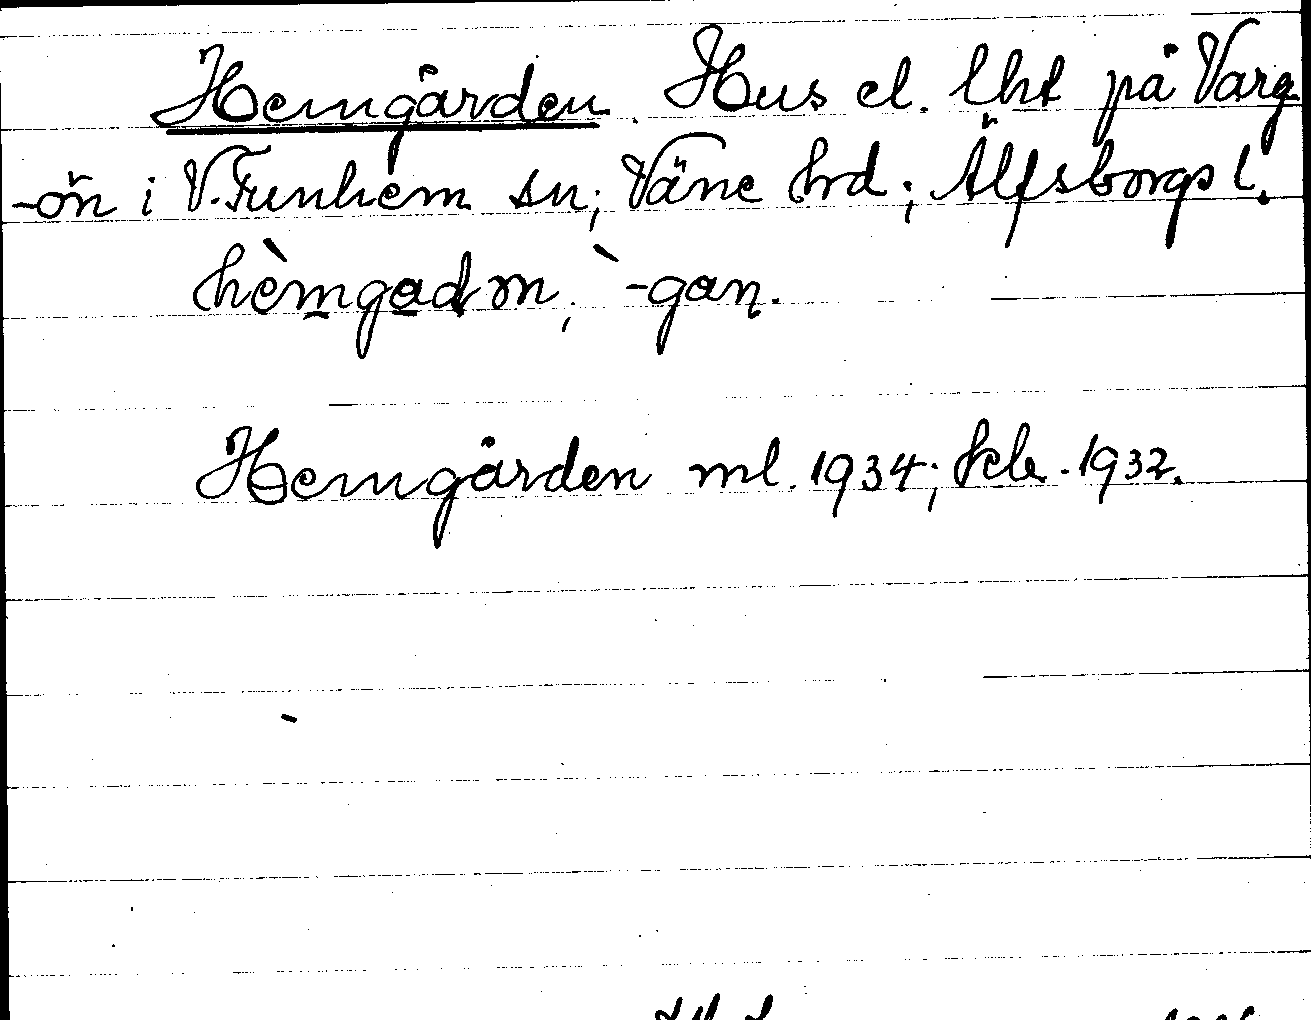 Hemgården. Hus el. lht på Varg
-ön i V. Tunhem sn; Väne hrd; Älfsborgs l.
hèmgadn, `-gan.
Hemgården ml. 1934; 1932.